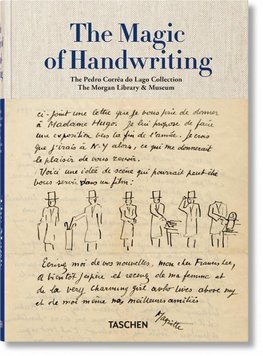 The Magic
of Handwriting
The Pedro Corrêa do Lago Collection
The Morgan Library & Museum
ci-joint une lettre que je vous prie de donner
à Madame Hugo. Je lui propose de faire
une exposition vers la fin de l'année. Je crois
que j'irais à N.Y alors, ce qui me donnerait
le plaisir de vous revoir.
Voici une idée de scène qui pourrait peut être
vous servir dans un film:
Ecrivez moi de vos nouvelles, mon cher Francis Lee,
à bientôt j'espère et recevez de ma femme et
de la very charming girl who lives above my
et de moi même nos meilleures amitiés
Magritte
TASCHEN